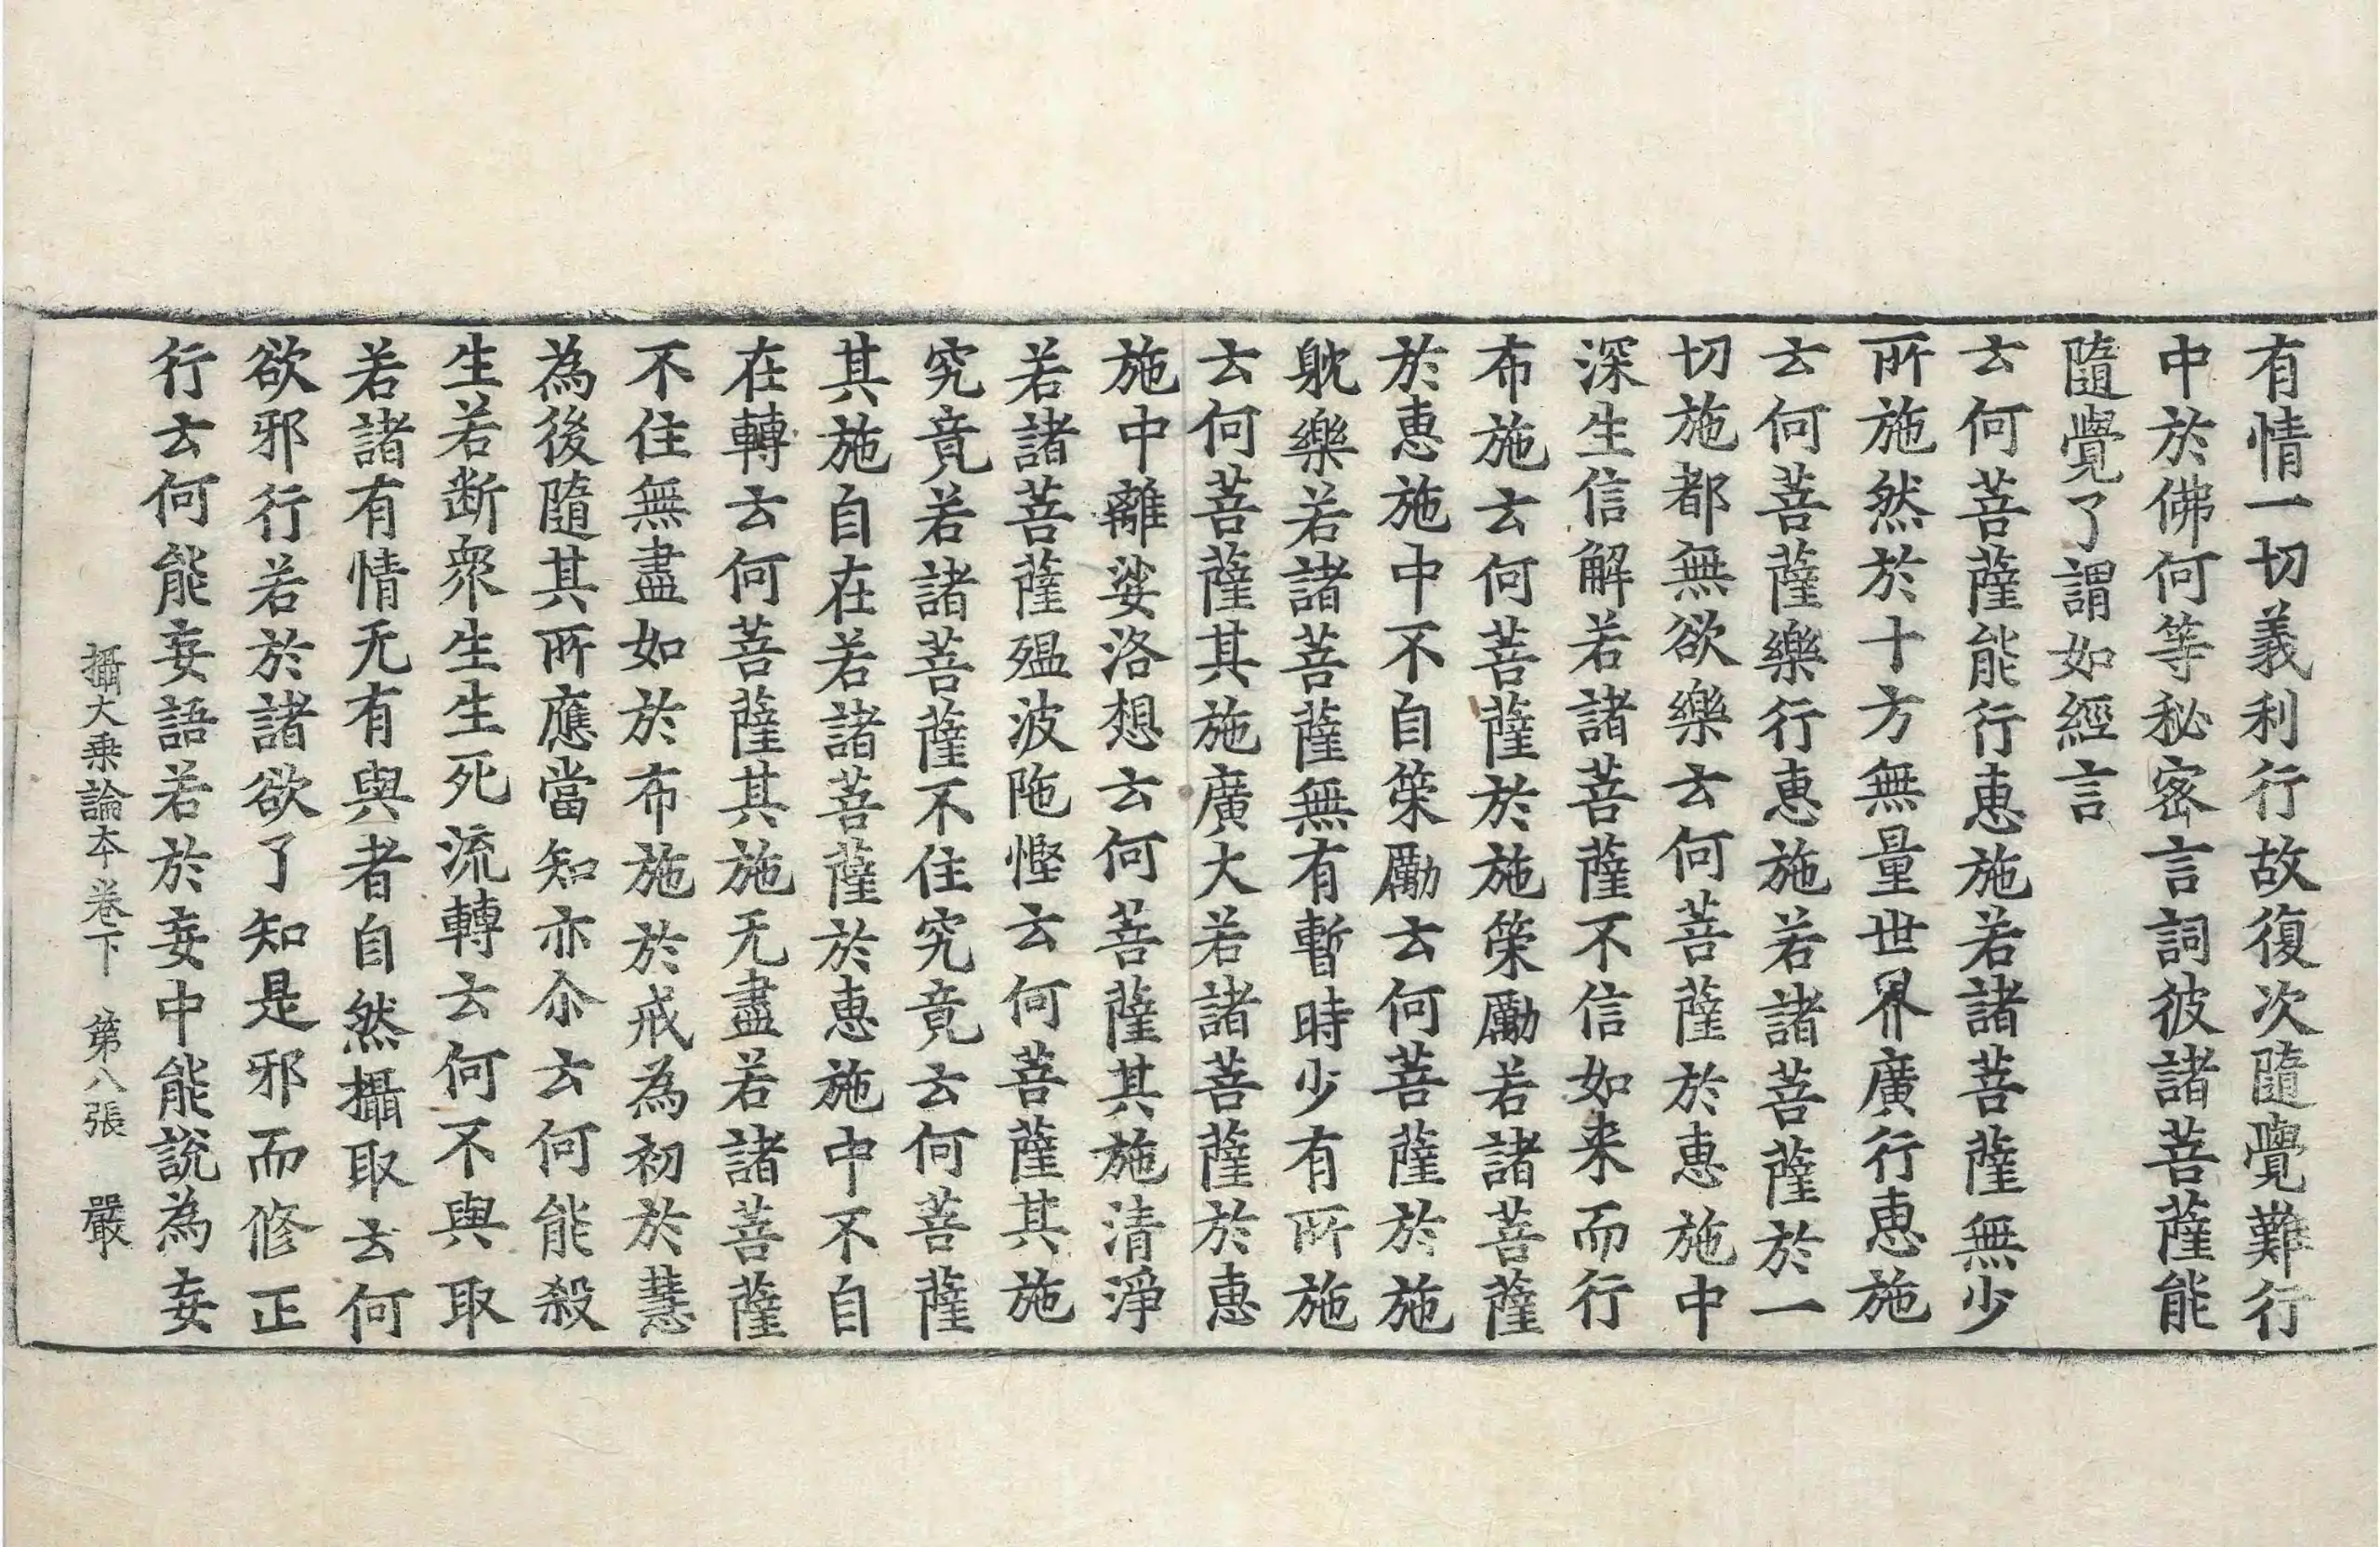 有情一切義利行故復次隨覺難行
中於佛何等秘密言詞彼諸菩薩能
隨覺了謂如經言
云何菩薩能行惠施若諸菩薩無少
所施然於十方無量世界廣行惠施
云何菩薩樂行惠施若諸菩薩於一
切施都無欲樂云何菩薩於惠施中
深生信解若諸菩薩不信如来而行
布施云何菩薩於施策勵若諸菩薩
於惠施中不自策勵云何菩薩於施
躭樂若諸菩薩無有暫時少有所施
云何菩薩其施廣大若諸菩薩於惠
施中離娑洛想云何菩薩其施清淨
若諸菩薩殟波陁慳云何菩薩其施
究竟若諸菩薩不住究竟云何菩薩
其施自在若諸菩薩於惠施中不自
在轉云何菩薩其施无盡若諸菩薩
不住無盡如於布施於戒為初於慧
為後隨其所應當知亦尒云何能殺
生若断衆生生死流轉云何不與取
若諸有情无有與者自然攝取云何
欲邪行若於諸欲了知是邪而修正
行云何能妄語若於妄中能說為妄
攝大乗論本卷下　第八張　嚴